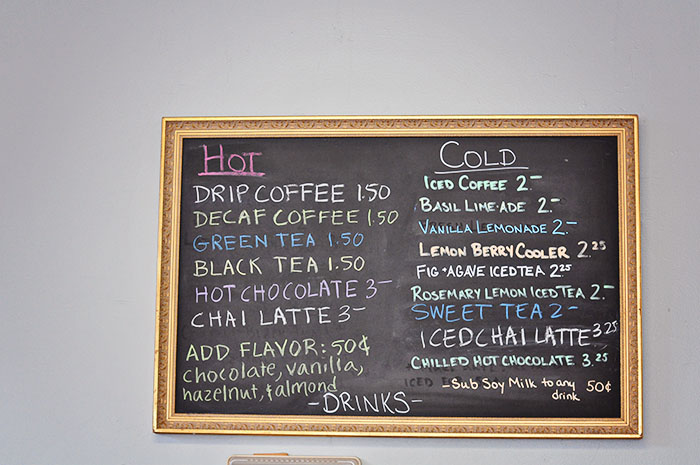 HOT
DRIP COFFEE 1.50
DECAF COFFEE 1.50
GREEN TEA 1.50
BLACK TEA 1.50
HOT CHOCOLATE 3-
CHAI LATTE 3-
ADD FLAVOR: 50¢
chocolate, vanilla,
hazelnut, & almond
COLD
ICED COFFEE 2.-
BASIL LIME-ADE 2.-
VANILLA LEMONADE 2.-
LEMON BERRY COOLER 2.25
FIG + AGAVE ICED TEA 2.25
ROSEMARY LEMON ICED TEA 2.-
SWEET TEA 2-
ICED CHAI LATTE 3.25
CHILLED HOT CHOCOLATE 3.25
ICED
- Sub Soy Milk to any 50¢
drink
- DRINKS -